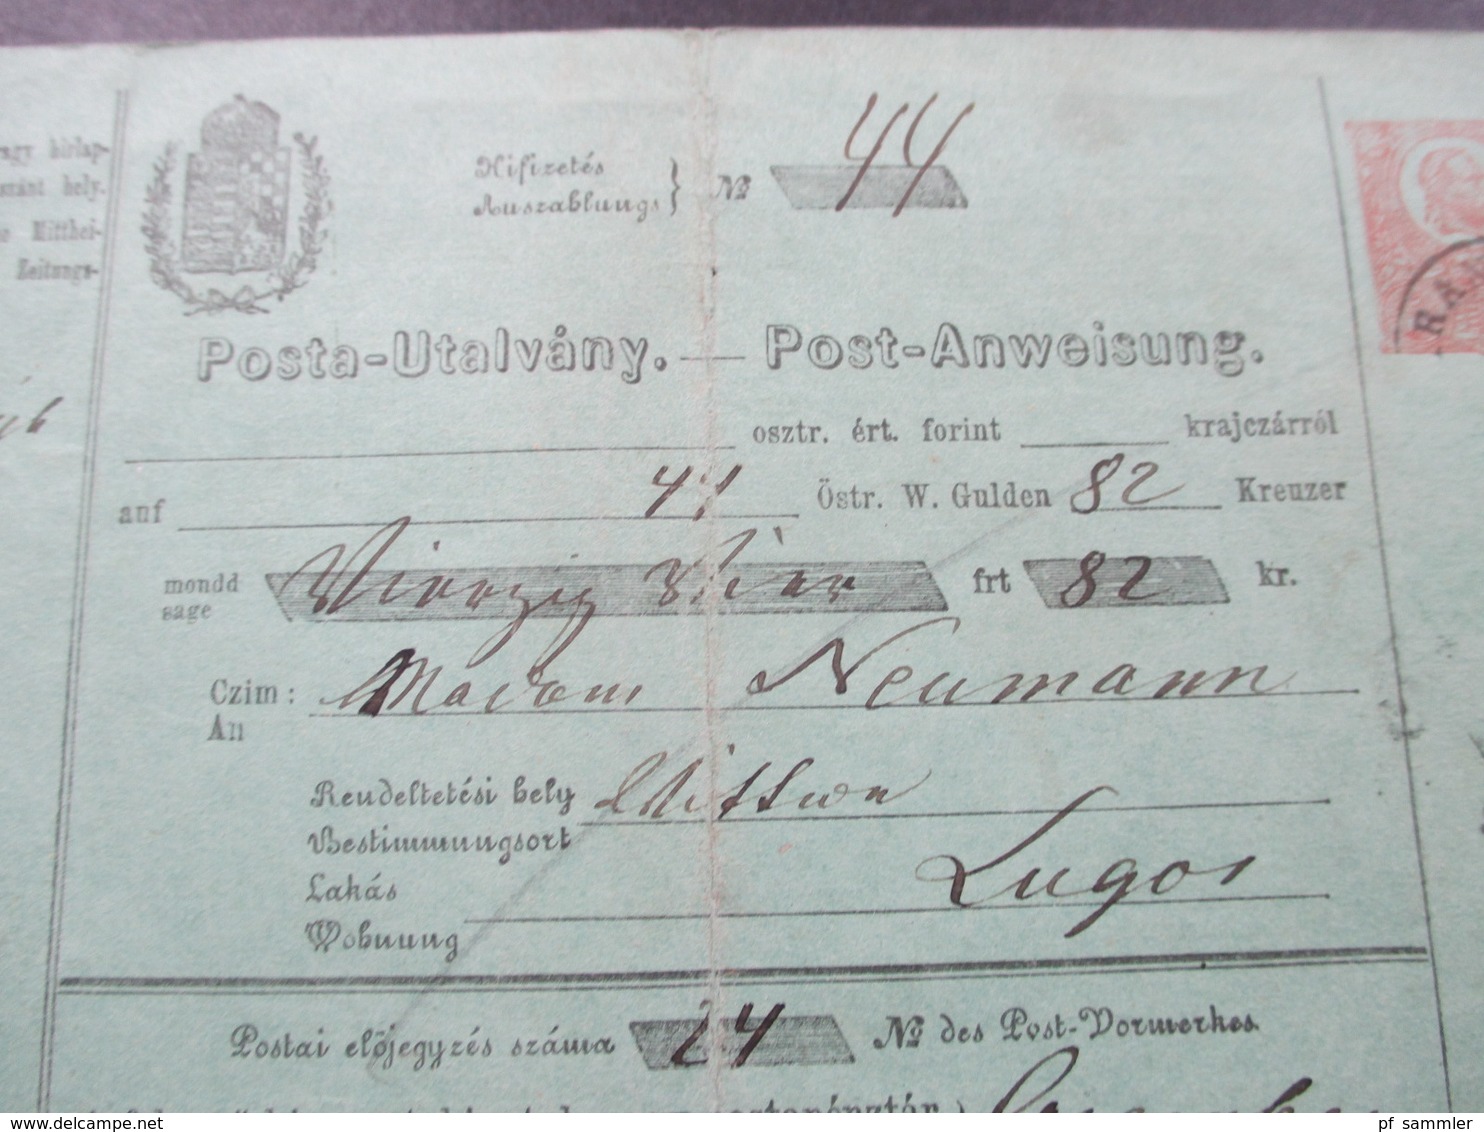 agy hirlap-
szánt hely.
Mitthei-
Zeitungs-
Kifizetés
Auszahlungs } № 44
Posta-Utalvány. — Post-Anweisung.
osztr. ért. forint krajczárról
auf 44 Östr. W. Gulden 82 Kreuzer
mondd
sage Vierzig Vier frt 82 kr.
Czim: Madam Neumann
An
Rendeltetési hely
Bestimmungsort
Lakás Lugos
Wohnung
Postai előjegyzés száma 24 № des Post-Vormerkes.
delcampe.net
pf_sammler